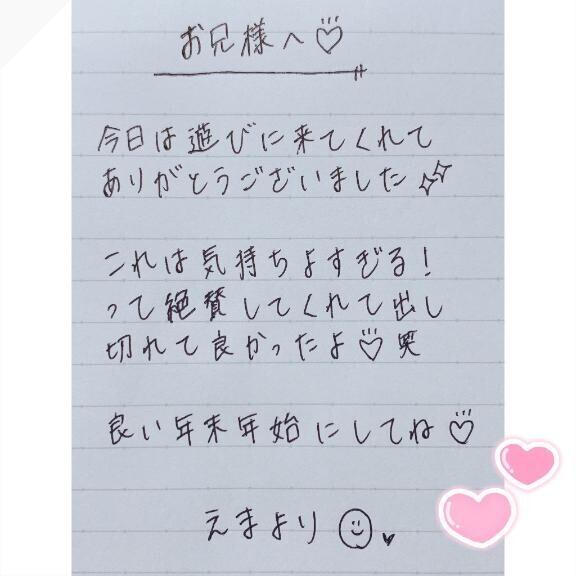 お兄様へ♡
今日は遊びに来てくれて
ありがとうございました✨
これは気持ちよすぎる!
って絶賛してくれて出し
切れて良かったよ♡笑
良い年末年始にしてね♡
えまより☺♥